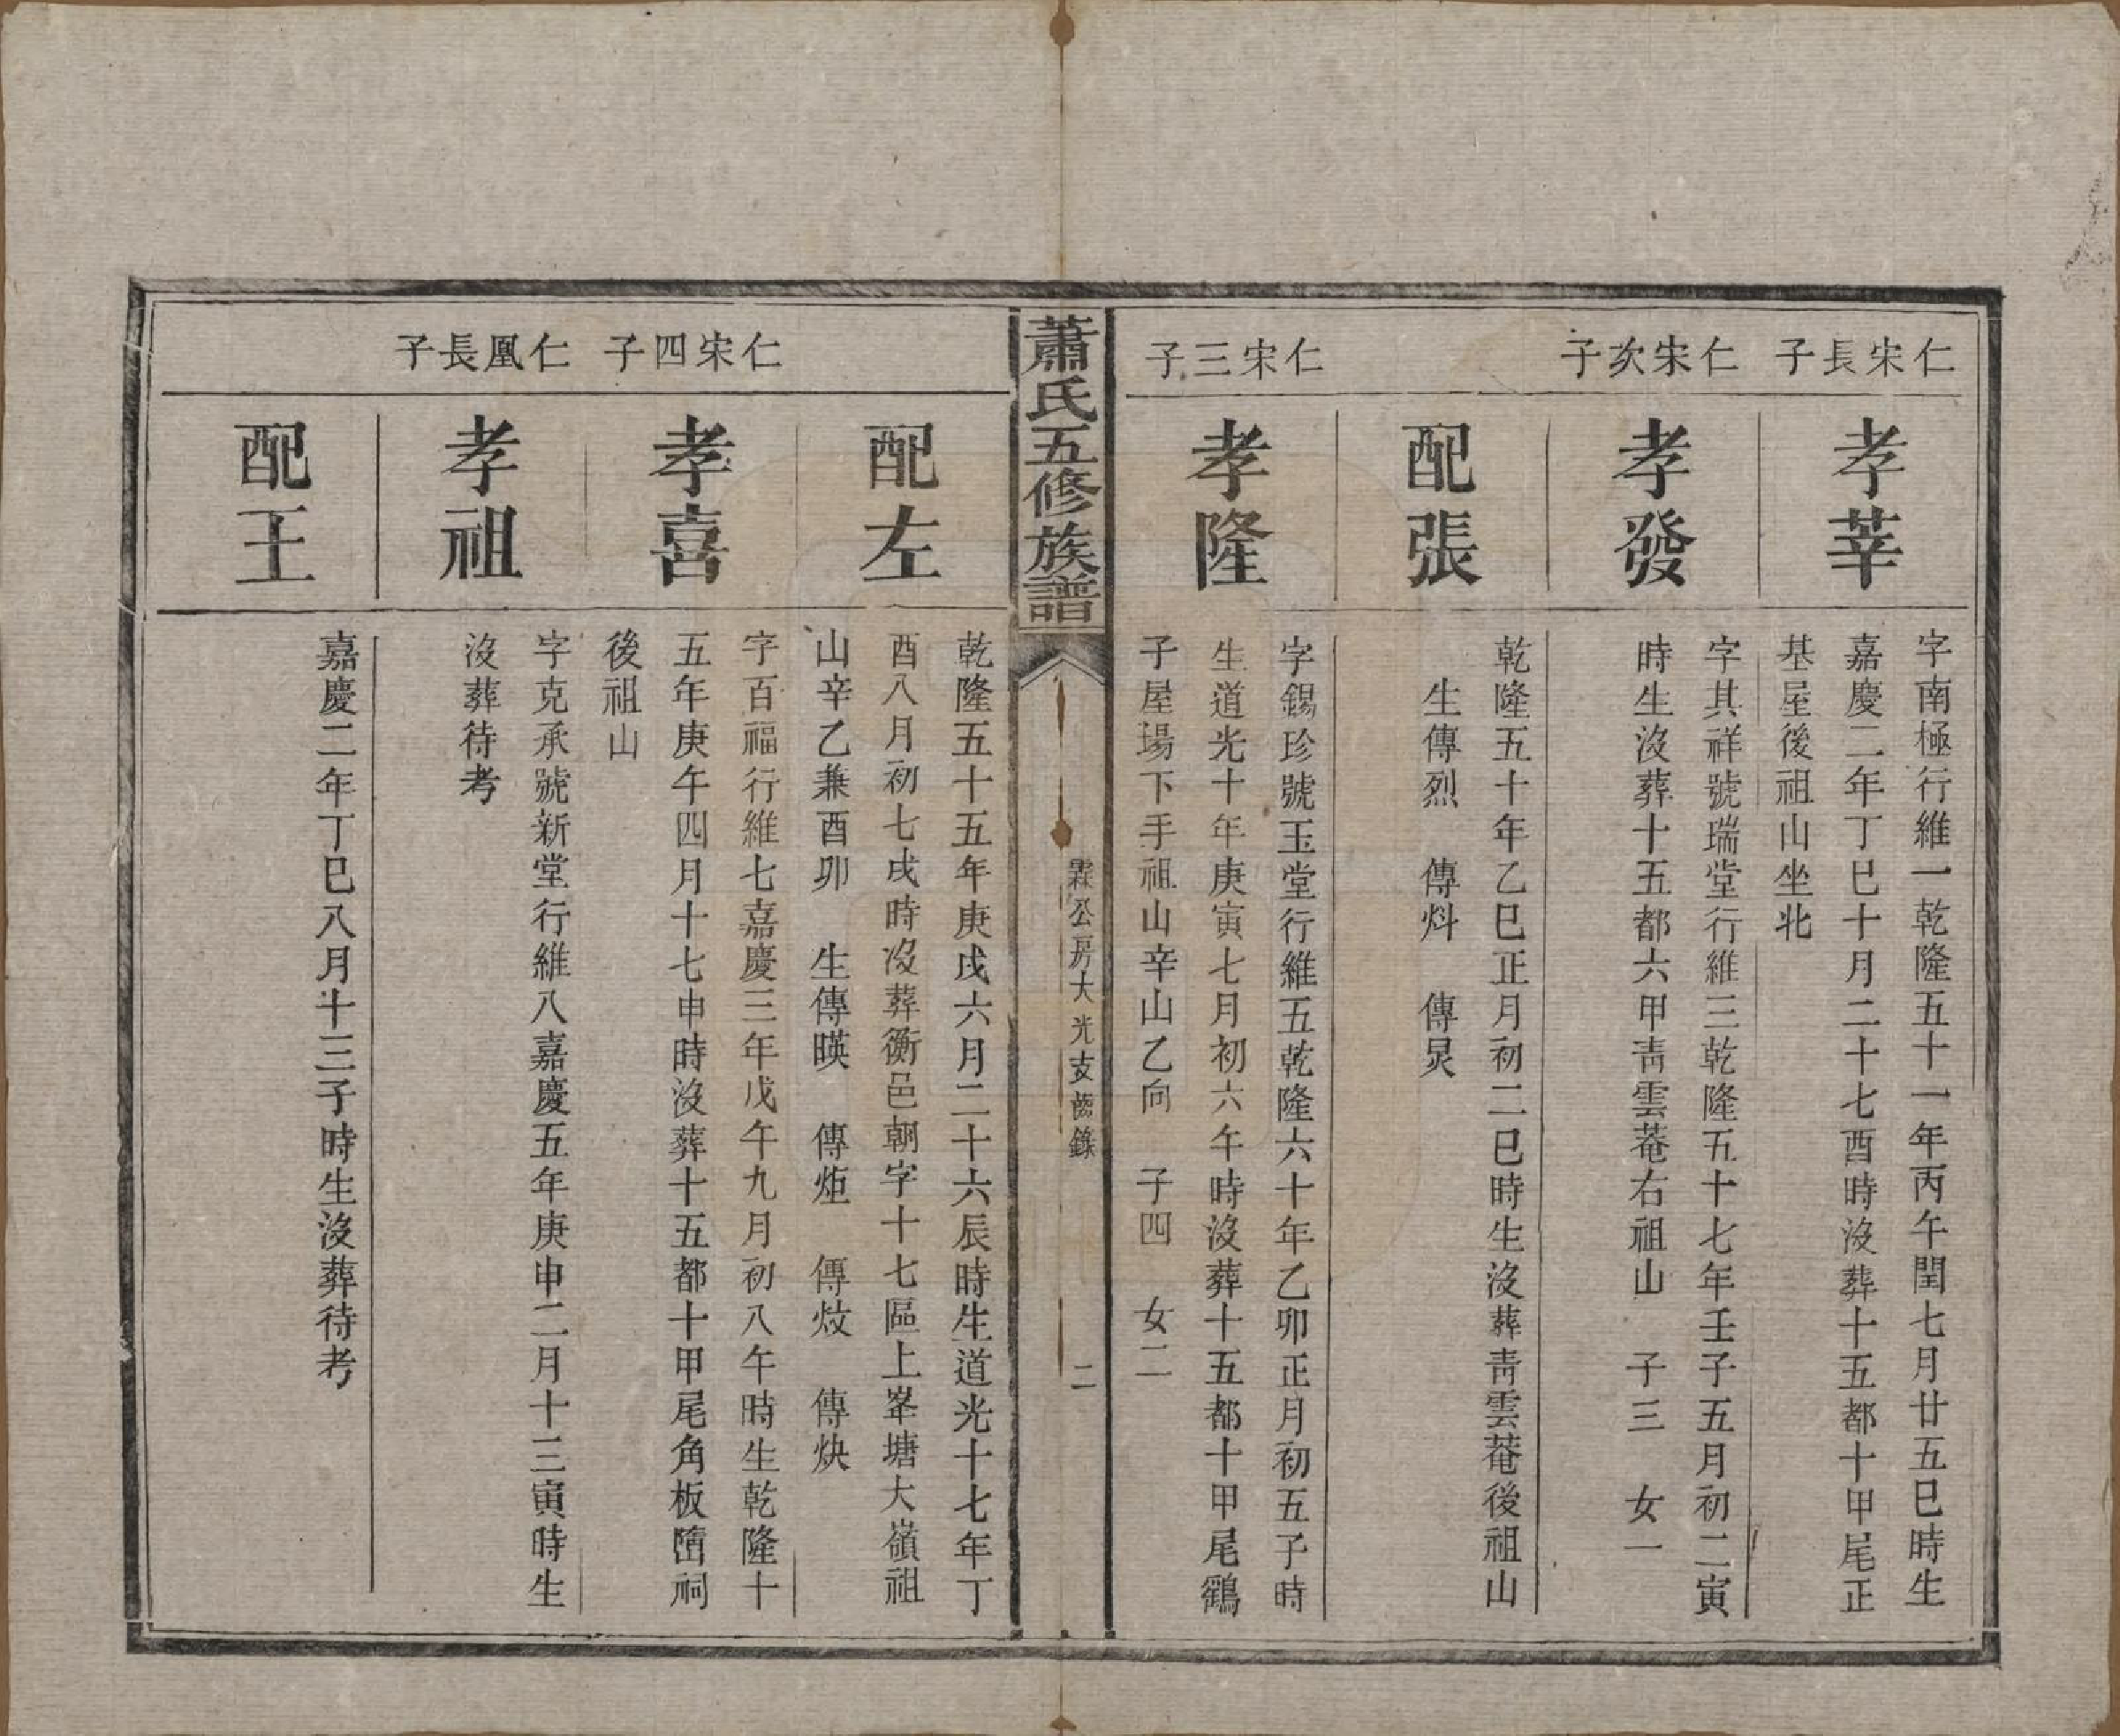 仁宋長子
孝莘
字南極行維一乾隆五十一年丙午閏七月廿五巳時生
嘉慶二年丁巳十月二十七酉時沒葬十五都十甲尾正
基屋後祖山坐北
仁宋次子
孝發
字其祥號瑞堂行維三乾隆五十七年壬子五月初二寅
時生沒葬十五都六甲靑雲菴右祖山 子三 女一
配張
乾隆五十年乙巳正月初二巳時生沒葬靑雲菴後祖山
生傳烈 傳炓 傳炅
仁宋三子
孝隆
字錫珍號玉堂行維五乾隆六十年乙卯正月初五子時
生道光十年庚寅七月初六午時沒葬十五都十甲尾鶴
子屋場下手祖山辛山乙向 子四 女二
蕭氏五修族譜
霖公房大光支齒錄
二
配左
乾隆五十五年庚戌六月二十六辰時生道光十七年丁
酉八月初七戌時沒葬衡邑朝字十七區上峯塘大嶺祖
山辛乙兼酉卯 生傳暎 傳炬 傳炆 傳炔
仁宋四子
孝喜
字百福行維七嘉慶三年戊午九月初八午時生乾隆十
五年庚午四月十七申時沒葬十五都十甲尾角板嶞祠
後祖山
仁凰長子
孝祖
字克承號新堂行維八嘉慶五年庚申二月十三寅時生
沒葬待考
配王
嘉慶二年丁巳八月十三子時生沒葬待考